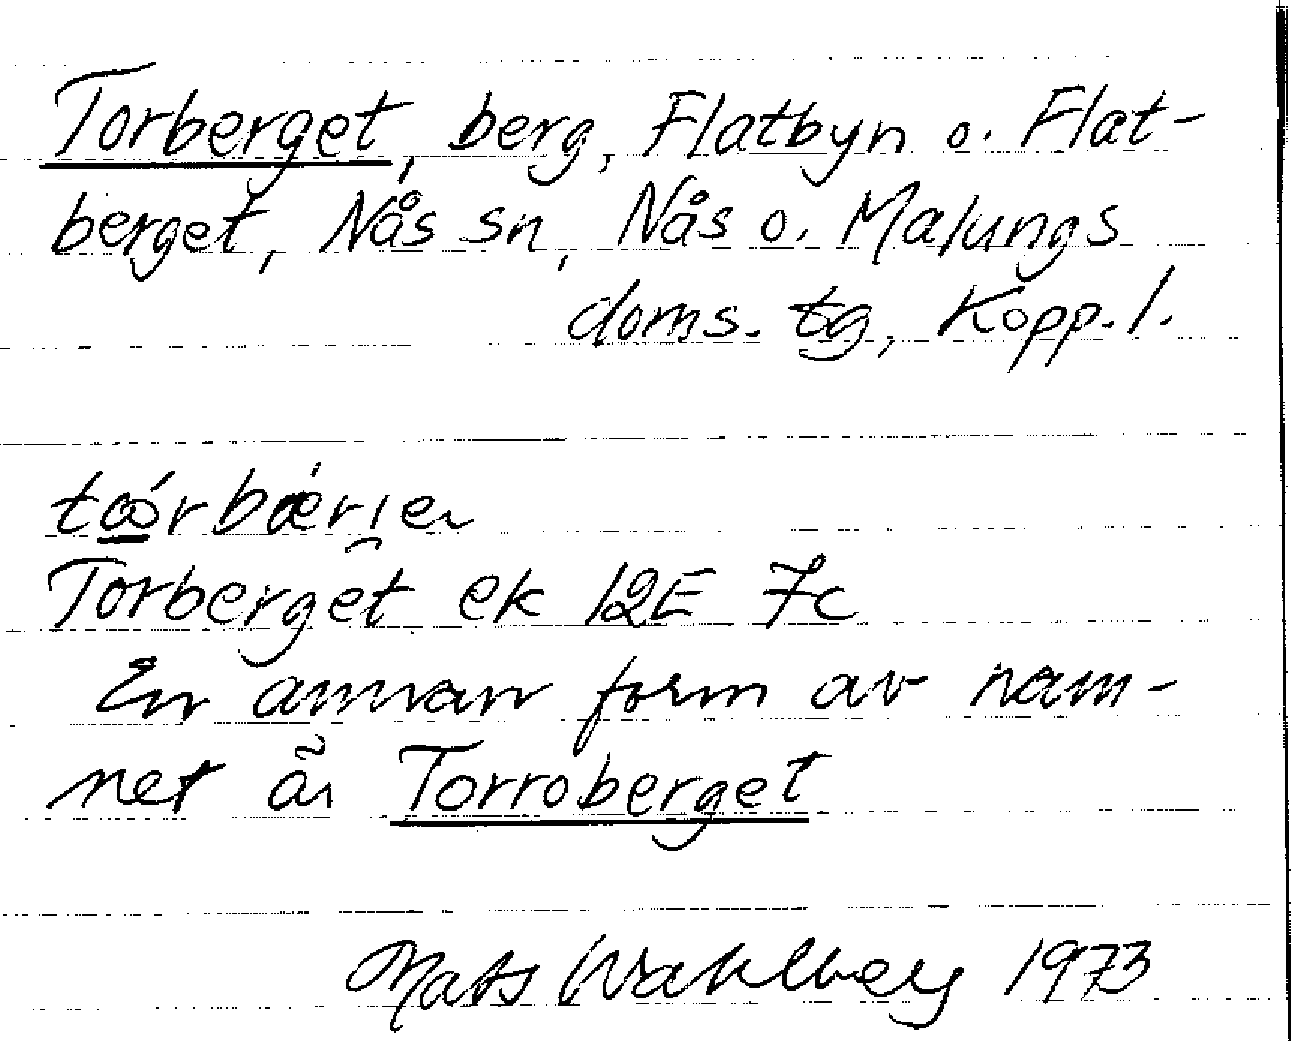 Torberget, berg, Flatbyn o. Flat-
berget, Nås sn, Nås o. Malungs
doms. tg, Kopp. l.
tǫ́rbæ̀ri̯en
Torberget ek 12E 7c
En annan form av nam-
net är Torroberget
Mats Wahlberg 1973